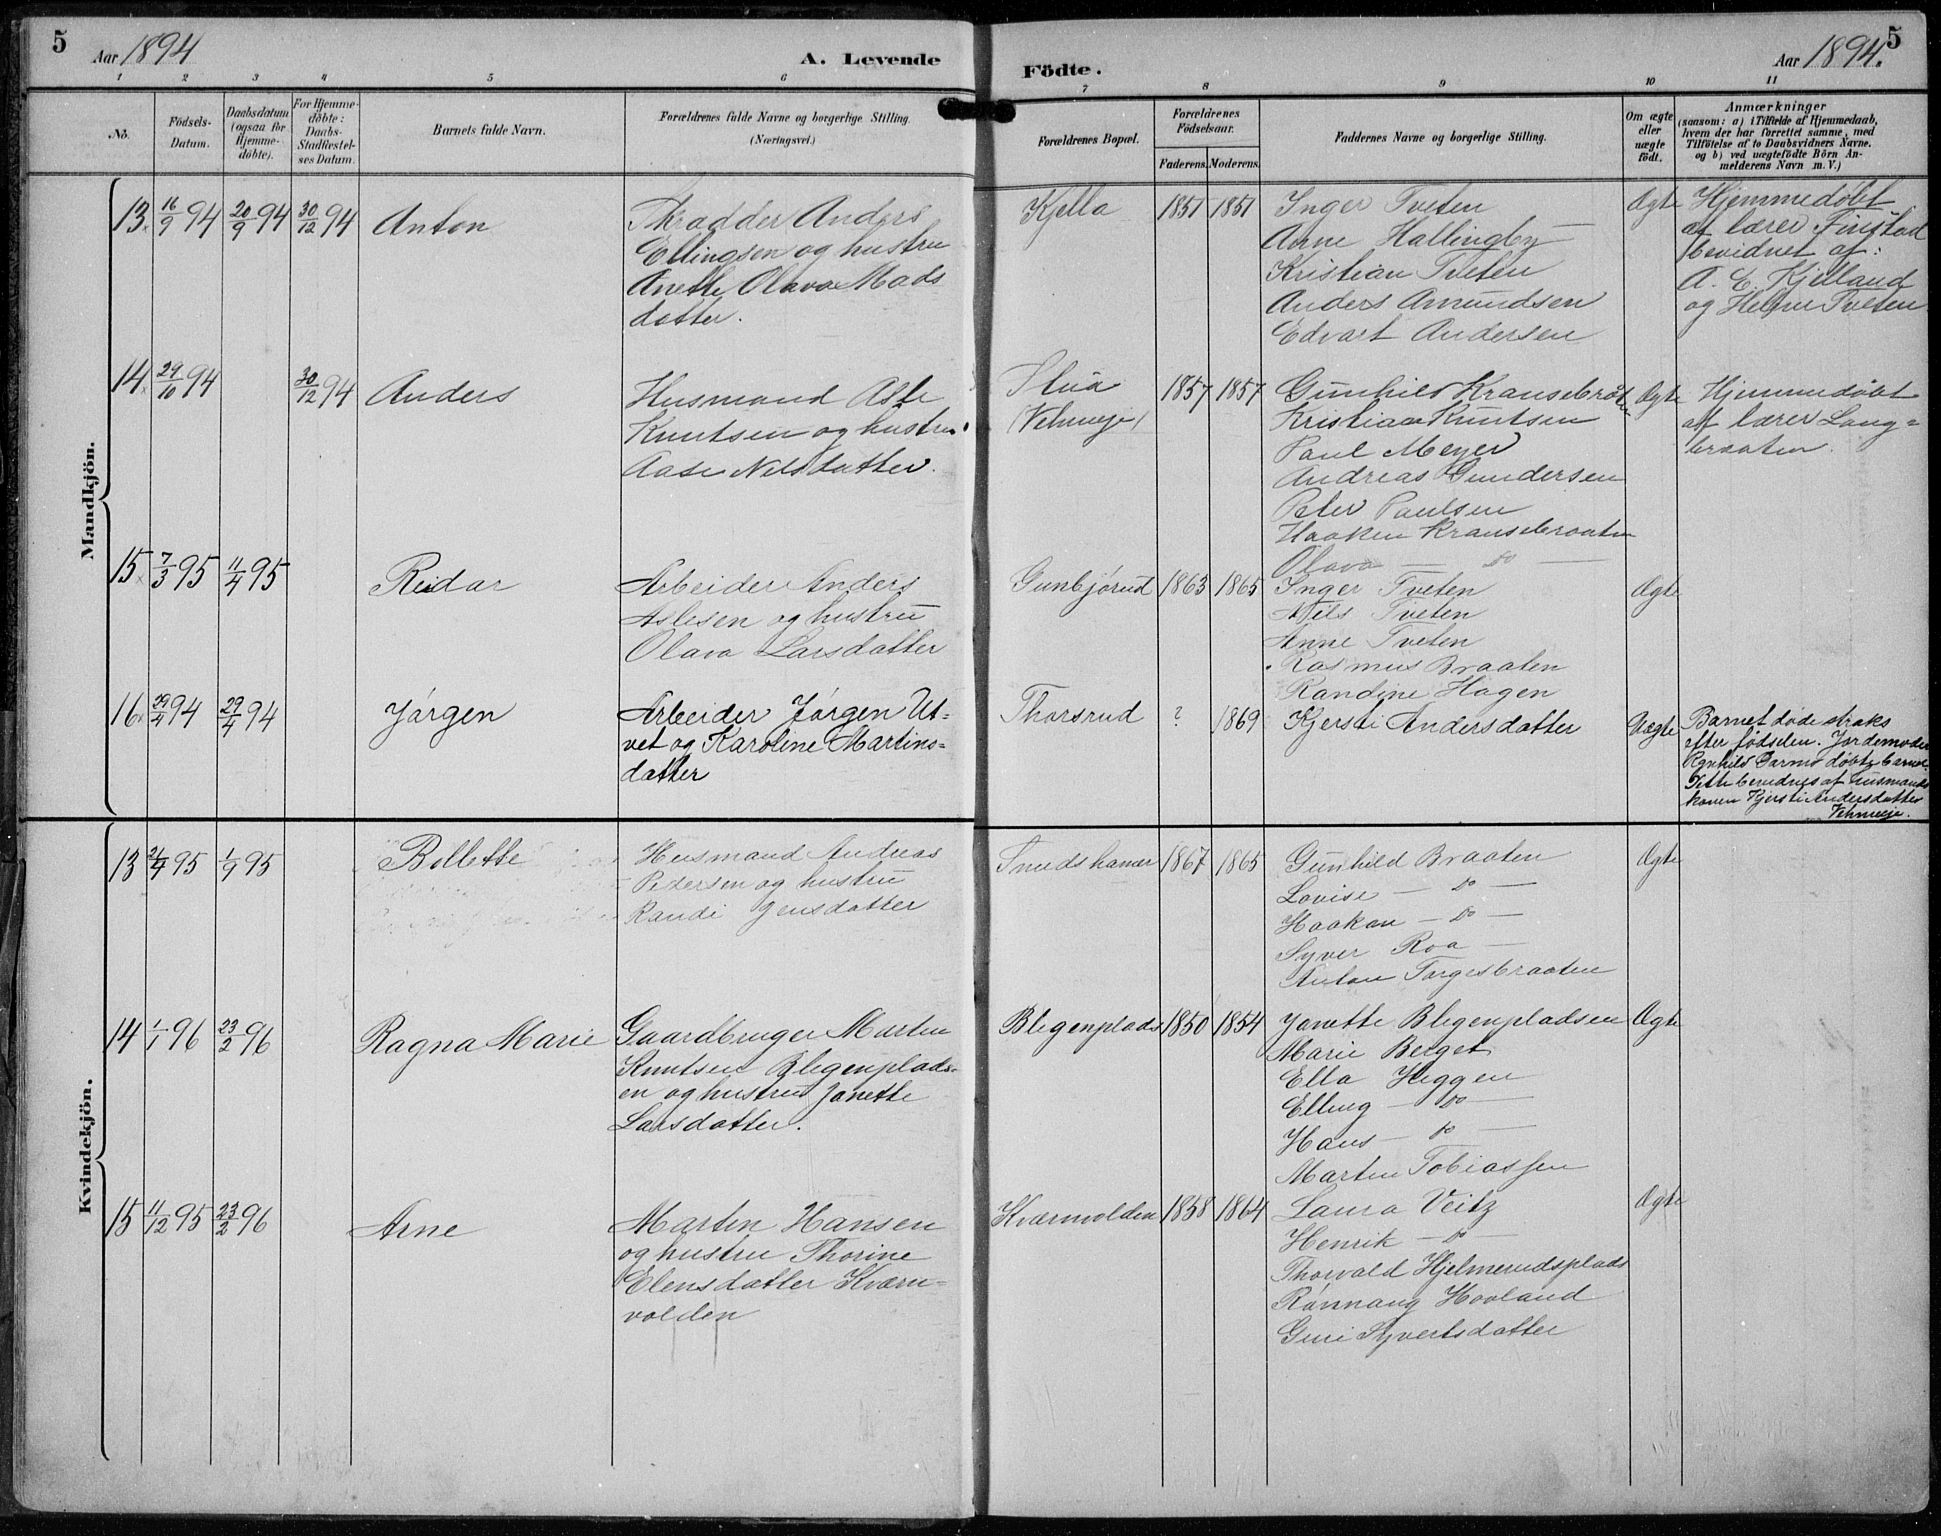 5
Aar 1894
A. Levende
1 2 3 4 5 6
No.
Födsels-
Datum.
Daabsdatum
(ogsaa for
Hjemme-
döbte).
For Hjemme-
döbte:
Daabs-
Stadfæstel-
ses Datum.
Barnets fulde Navn.
Forældrenes fulde Navne og borgerlige Stilling.
(Næringsvei.)
Mandkjön.
13 16/9 94 20/9 94 30/12 94 Anton
Skrædder Anders
Ellingsen og hustru
Anette Olava Mads
datter.
14 29/10 94 30/12 94 Anders
Husmand Asle
Knutsen og hustru
Aase Nilsdatter.
15 7/3 95 11/4 95 Reidar
Arbeider Anders
Aslesen og hustru
Olava Larsdatter
16 29/4 94 29/4 94 Jørgen
Arbeider Jørgen Ut-
vet og Karoline Martins-
datter
Kvindekjön.
13 95 1/9 95 Bollette
Husmand Andreas
Pedersen og hustru
Randi Jensdatter
14 1/1 96 23/2 96 Ragna Marie
Gaardbruger Marten
Knutsen Blegenplads-
en og hustru Janette
Larsdatter.
15 11/12 95 23/2 96 Arne
Martin Hansen
og hustru Thorine
Elensdatter Kværn-
volden
Födte.
Aar 1894.
5
7 8 9 10 11
Forældrenes Bopæl.
Forældrenes
Födselsaar.
Faderens. Moderens.
Faddernes Navne og borgerlige Stilling.
Om ægte
eller
uægte
födt.
Anmærkninger
(saasom: a) i Tilfælde af Hjemmedaab,
hvem der har forrettet samme, med
Tilföielse af to Daabsvidners Navne.
og b) ved uægtefödte Börn An-
melderens Navn m. V.)
Kjella 1851 1851
Inger Tveten
Arne Hallingby
Kristian Tveten
Anders Amundsen
Edvart Andersen
Ægte
Hjemmedøbt
af lærer Finstad
bevidnet af:
A. E. Kjelland
og Helene Tveten
Stua
(Vehmeje)
1857 1857
Gunhild Kransebråten
Kristian Knutsen
Paul Meyer
Andreas Gundersen
Peter Paulsen
Haaken Kransebraaten
Olava — do —
Ægte
Hjemmedøbt
af lærer Lang-
braaten.
Gunbjørud 1863 1865
Inger Tveten
Nils Tveten
Anne Tveten
Rasmus Braaten
Randine Hagen
Ægte
Thorsrud ? 1869
Kjersti Andersdatter
Uægte
Barnet døde straks
efter fødselen. Jordemoder
døbte barnet.
Dette bevidnes af husmands
konen Kjersti Andersdatter
Vehmeje.
1867 1865
Gunhild Braaten
Lovise — do —
Haakon — do —
Syver Roa —
Anton Torgesbraaten
Ægte
Blegenplads 1850 1854
Janette Blegenpladsen
Marie Berget
Ella Heggen
Elling — do —
Hans — do —
Marten Tobiassen
Ægte
Kværnvolden 1858 1864
Laura Veitz
Henrik — do —
Thorvald Hjelmerudsplads
Rønnaug Hovland
Guri Syvertsdatter
Ægte